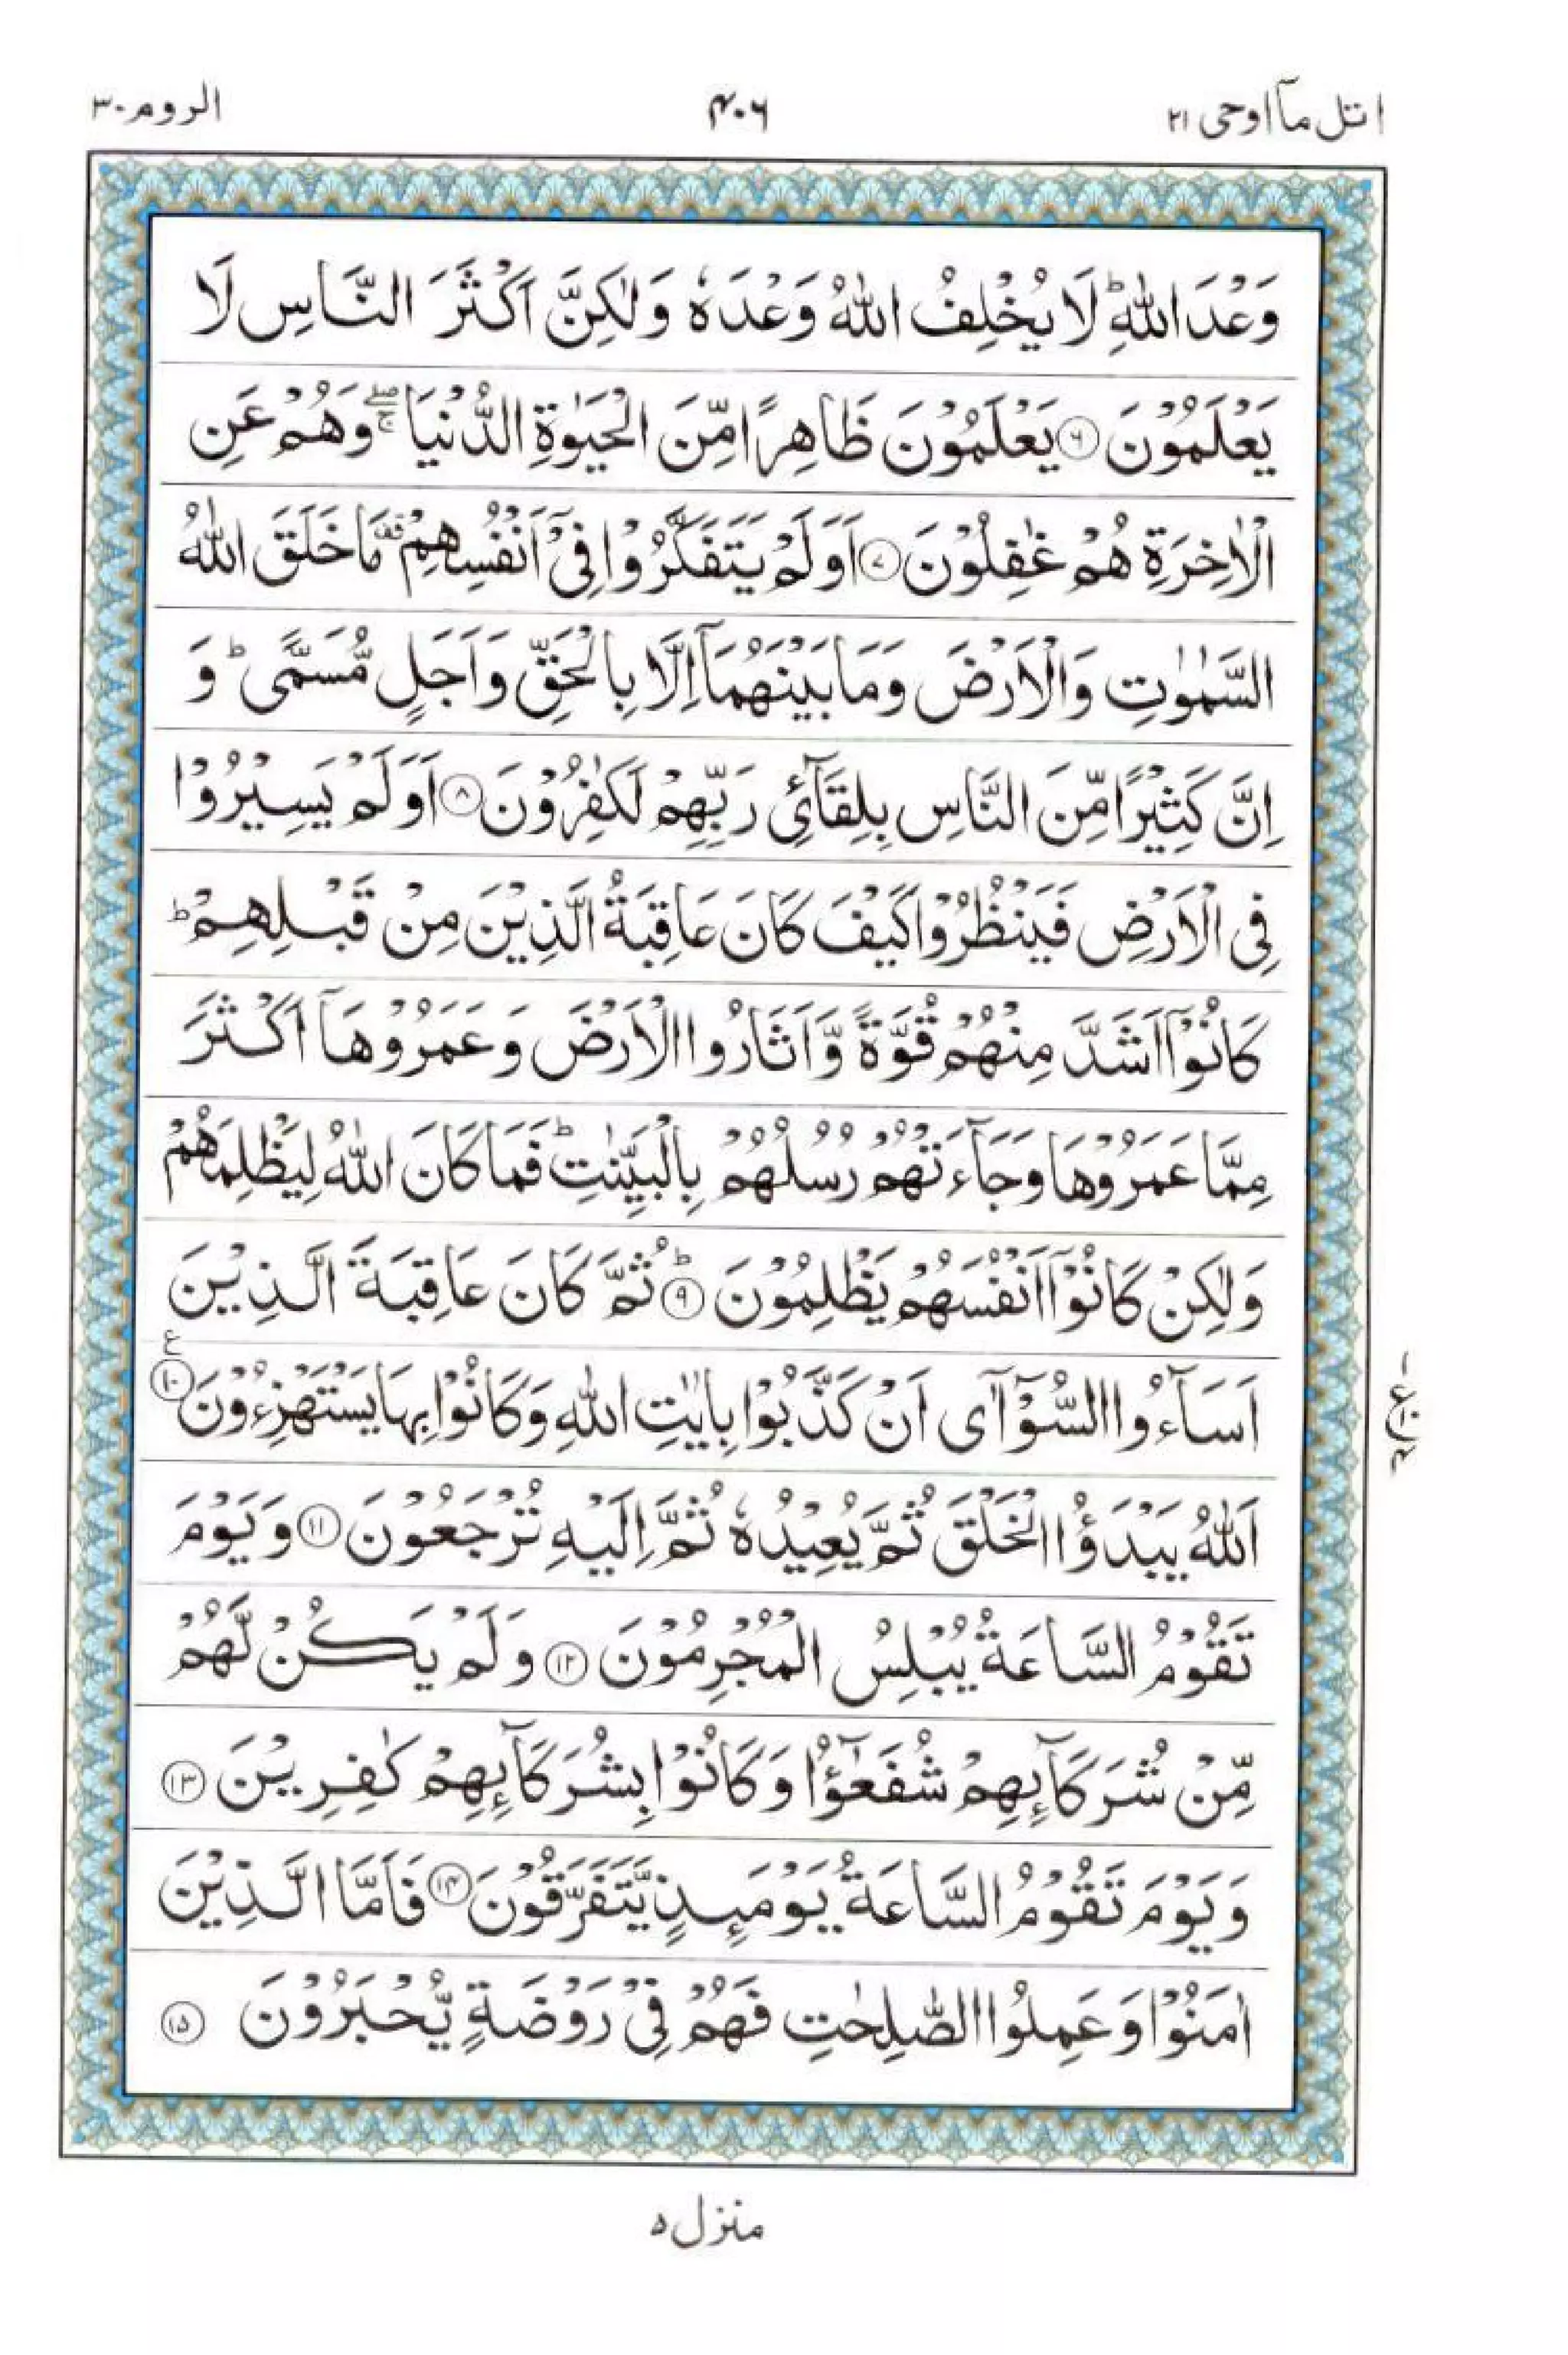 اتل مآ اوحی ۲۱
۴۰۶
الروم ۳۰
وَعْدَ اللّٰهِ ؕ لَا یُخْلِفُ اللّٰهُ وَعْدَهٗ وَلٰكِنَّ اَكْثَرَ النَّاسِ لَا
یَعْلَمُوْنَ ۶ یَعْلَمُوْنَ ظَاهِرًا مِّنَ الْحَیٰوةِ الدُّنْیَا ۖۚ وَهُمْ عَنِ
الْاٰخِرَةِ هُمْ غٰفِلُوْنَ ۷ اَوَلَمْ یَتَفَكَّرُوْا فِیْۤ اَنْفُسِهِمْ قف مَا خَلَقَ اللّٰهُ
السَّمٰوٰتِ وَالْاَرْضَ وَمَا بَیْنَهُمَاۤ اِلَّا بِالْحَقِّ وَاَجَلٍ مُّسَمًّی ؕ وَ
اِنَّ كَثِیْرًا مِّنَ النَّاسِ بِلِقَآئِ رَبِّهِمْ لَكٰفِرُوْنَ ۸ اَوَلَمْ یَسِیْرُوْا
فِی الْاَرْضِ فَیَنْظُرُوْا كَیْفَ كَانَ عَاقِبَةُ الَّذِیْنَ مِنْ قَبْلِهِمْ ؕ
كَانُوْۤا اَشَدَّ مِنْهُمْ قُوَّةً وَّاَثَارُوا الْاَرْضَ وَعَمَرُوْهَاۤ اَكْثَرَ
مِمَّا عَمَرُوْهَا وَجَآءَتْهُمْ رُسُلُهُمْ بِالْبَیِّنٰتِ ؕ فَمَا كَانَ اللّٰهُ لِیَظْلِمَهُمْ
وَلٰكِنْ كَانُوْۤا اَنْفُسَهُمْ یَظْلِمُوْنَ ؕ ۹ ثُمَّ كَانَ عَاقِبَةَ الَّذِیْنَ
اَسَآءُوا السُّوْٓاٰۤی اَنْ كَذَّبُوْا بِاٰیٰتِ اللّٰهِ وَكَانُوْا بِهَا یَسْتَهْزِءُوْنَ ۱۰ ع
اَللّٰهُ یَبْدَؤُا الْخَلْقَ ثُمَّ یُعِیْدُهٗ ثُمَّ اِلَیْهِ تُرْجَعُوْنَ ۱۱ وَیَوْمَ
تَقُوْمُ السَّاعَةُ یُبْلِسُ الْمُجْرِمُوْنَ ۱۲ وَلَمْ یَكُنْ لَّهُمْ
مِّنْ شُرَكَآىِٕهِمْ شُفَعٰٓؤُا وَكَانُوْا بِشُرَكَآىِٕهِمْ كٰفِرِیْنَ ۱۳
وَیَوْمَ تَقُوْمُ السَّاعَةُ یَوْمَىِٕذٍ یَّتَفَرَّقُوْنَ ۱۴ فَاَمَّا الَّذِیْنَ
اٰمَنُوْا وَعَمِلُوا الصّٰلِحٰتِ فَهُمْ فِیْ رَوْضَةٍ یُّحْبَرُوْنَ ۱۵
منزل ۵